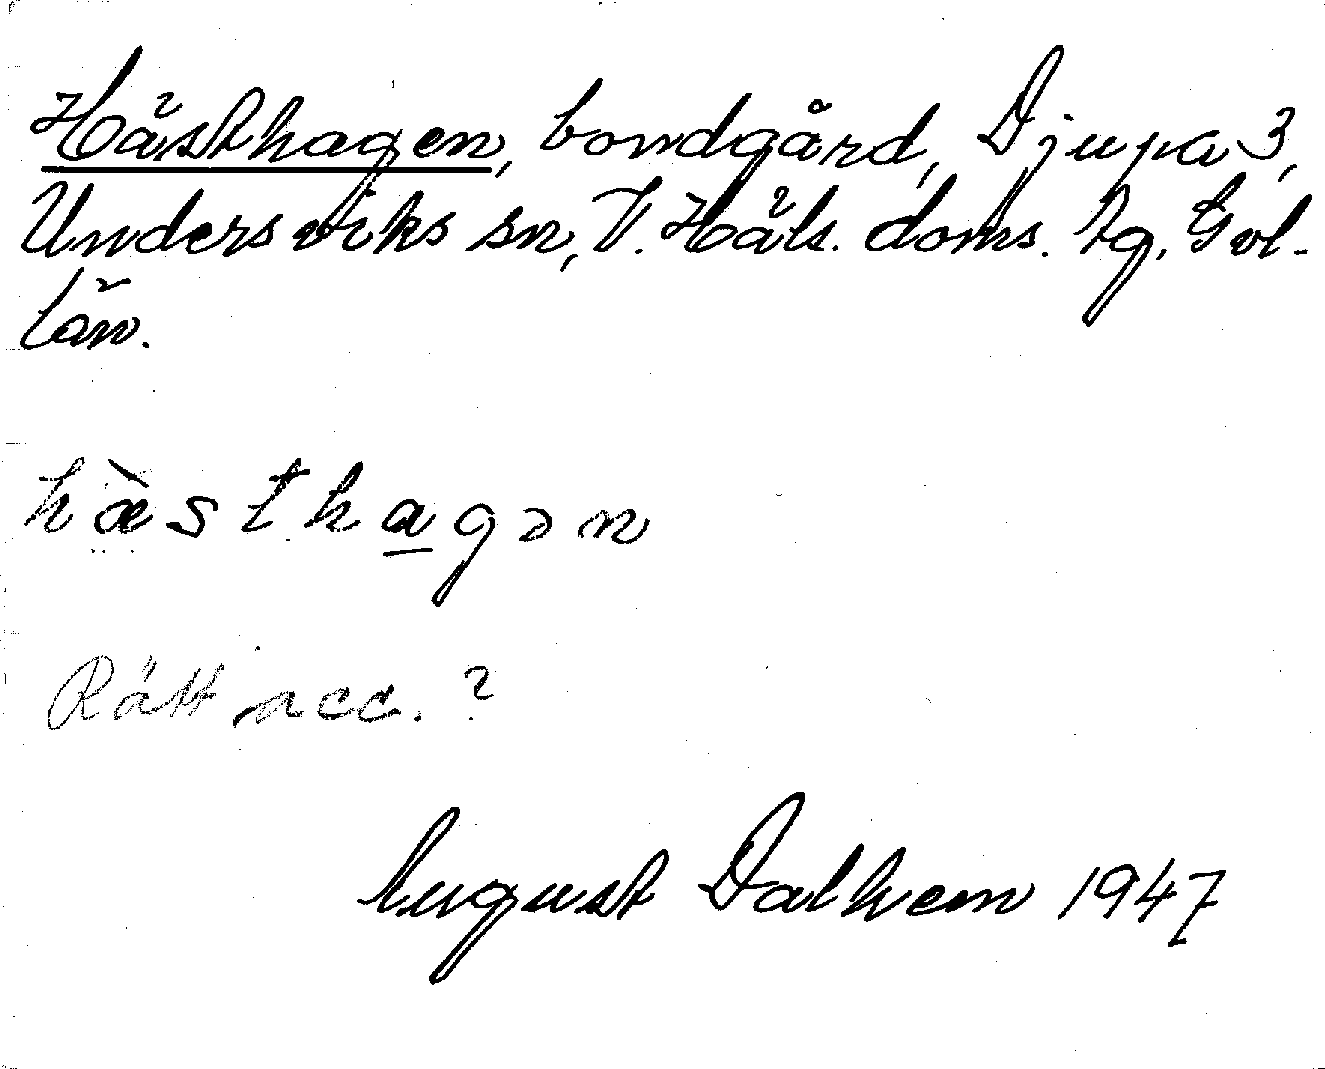 Hästhagen, bondgård, Djupa 3,
Undersviks sn, V. Häls. doms. tg, Gvl-
län.
hæ̀sthagən
Rätt acc. ?
August Dalhem 1947